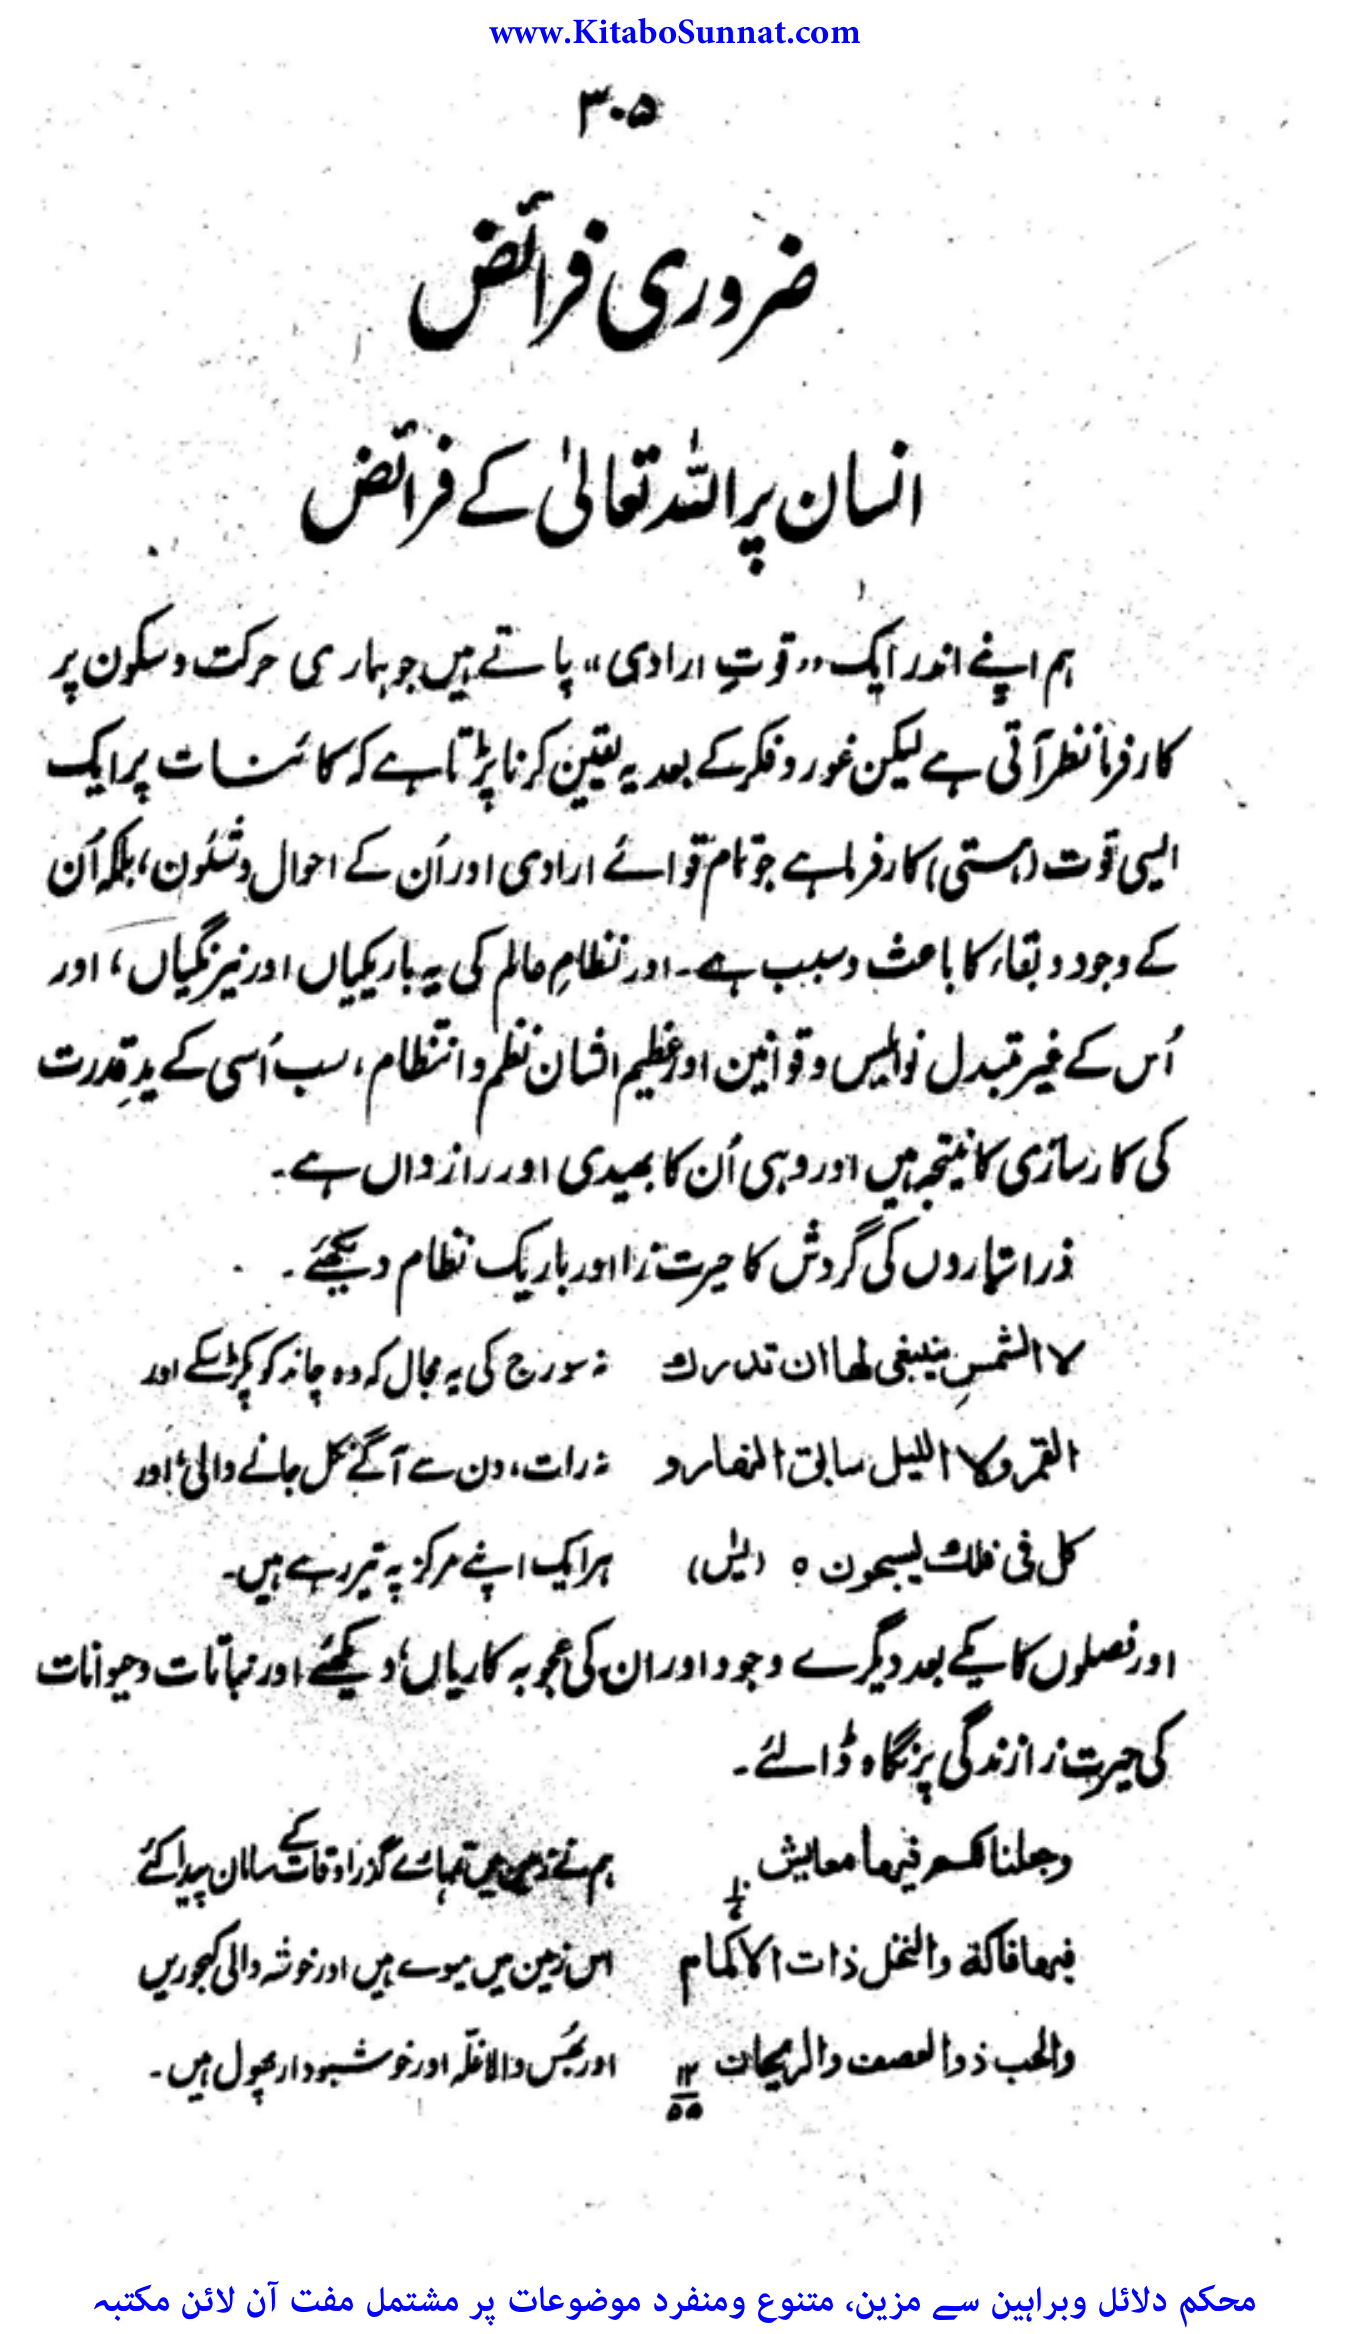 www.KitaboSunnat.com
۳۰۵
ضروری فرائض
انسان پر اللہ تعالیٰ کے فرائض
ہم اپنے اندر ایک "قوتِ ارادی" پاتے ہیں جو ہماری حرکت و سکون پر
کارفرما نظر آتی ہے لیکن غور و فکر کے بعد یہ یقین کرنا پڑتا ہے کہ کائنات پر ایک
ایسی قوت (ہستی) کارفرما ہے جو تمام قوائے ارادی اور اُن کے احوال و شئون، بلکہ اُن
کے وجود و بقاء کا باعث و سبب ہے۔ اور نظامِ عالم کی یہ باریکیاں اور نیرنگیاں، اور
اُس کے غیر متبدل نوامیس و قوانین اور عظیم الشان نظم و انتظام، سب اُسی کے یدِ قدرت
کی کارسازی کا نتیجہ ہیں اور وہی اُن کا بھیدی اور رازداں ہے۔
ذرا ستاروں کی گردش کا حیرت زا اور باریک نظام دیکھئے۔
لا الشمس ینبغی لھا ان تدرک نہ سورج کی یہ مجال کہ وہ چاند کو پکڑ سکے اور
القمر ولا اللیل سابق النھار و نہ رات، دن سے آگے نکل جانے والی، اور
کل فی فلک یسبحون ہ (یٰس) ہر ایک اپنے مرکز پہ تیر رہے ہیں۔
اور فصلوں کا یکے بعد دیگرے وجود اور ان کی عجوبہ کاریاں، دیکھئے اور نباتات و حیوانات
کی حیرت زا زندگی پر نگاہ ڈالئے۔
وجعلنا لکم فیھا معایش ہم نے زمین میں تمہارے گذر اوقات کے سامان پیدا کئے
فیھا فاکھة والنخل ذات الاکمام اس زمین میں میوے ہیں اور خوشہ والی کھجوریں
والحب ذوالعصف والریحان ۱۲/۵۵ اور بھُس والا غلّہ اور خوشبودار پھول ہیں۔
محکم دلائل وبراہین سے مزین، متنوع ومنفرد موضوعات پر مشتمل مفت آن لائن مکتبہ